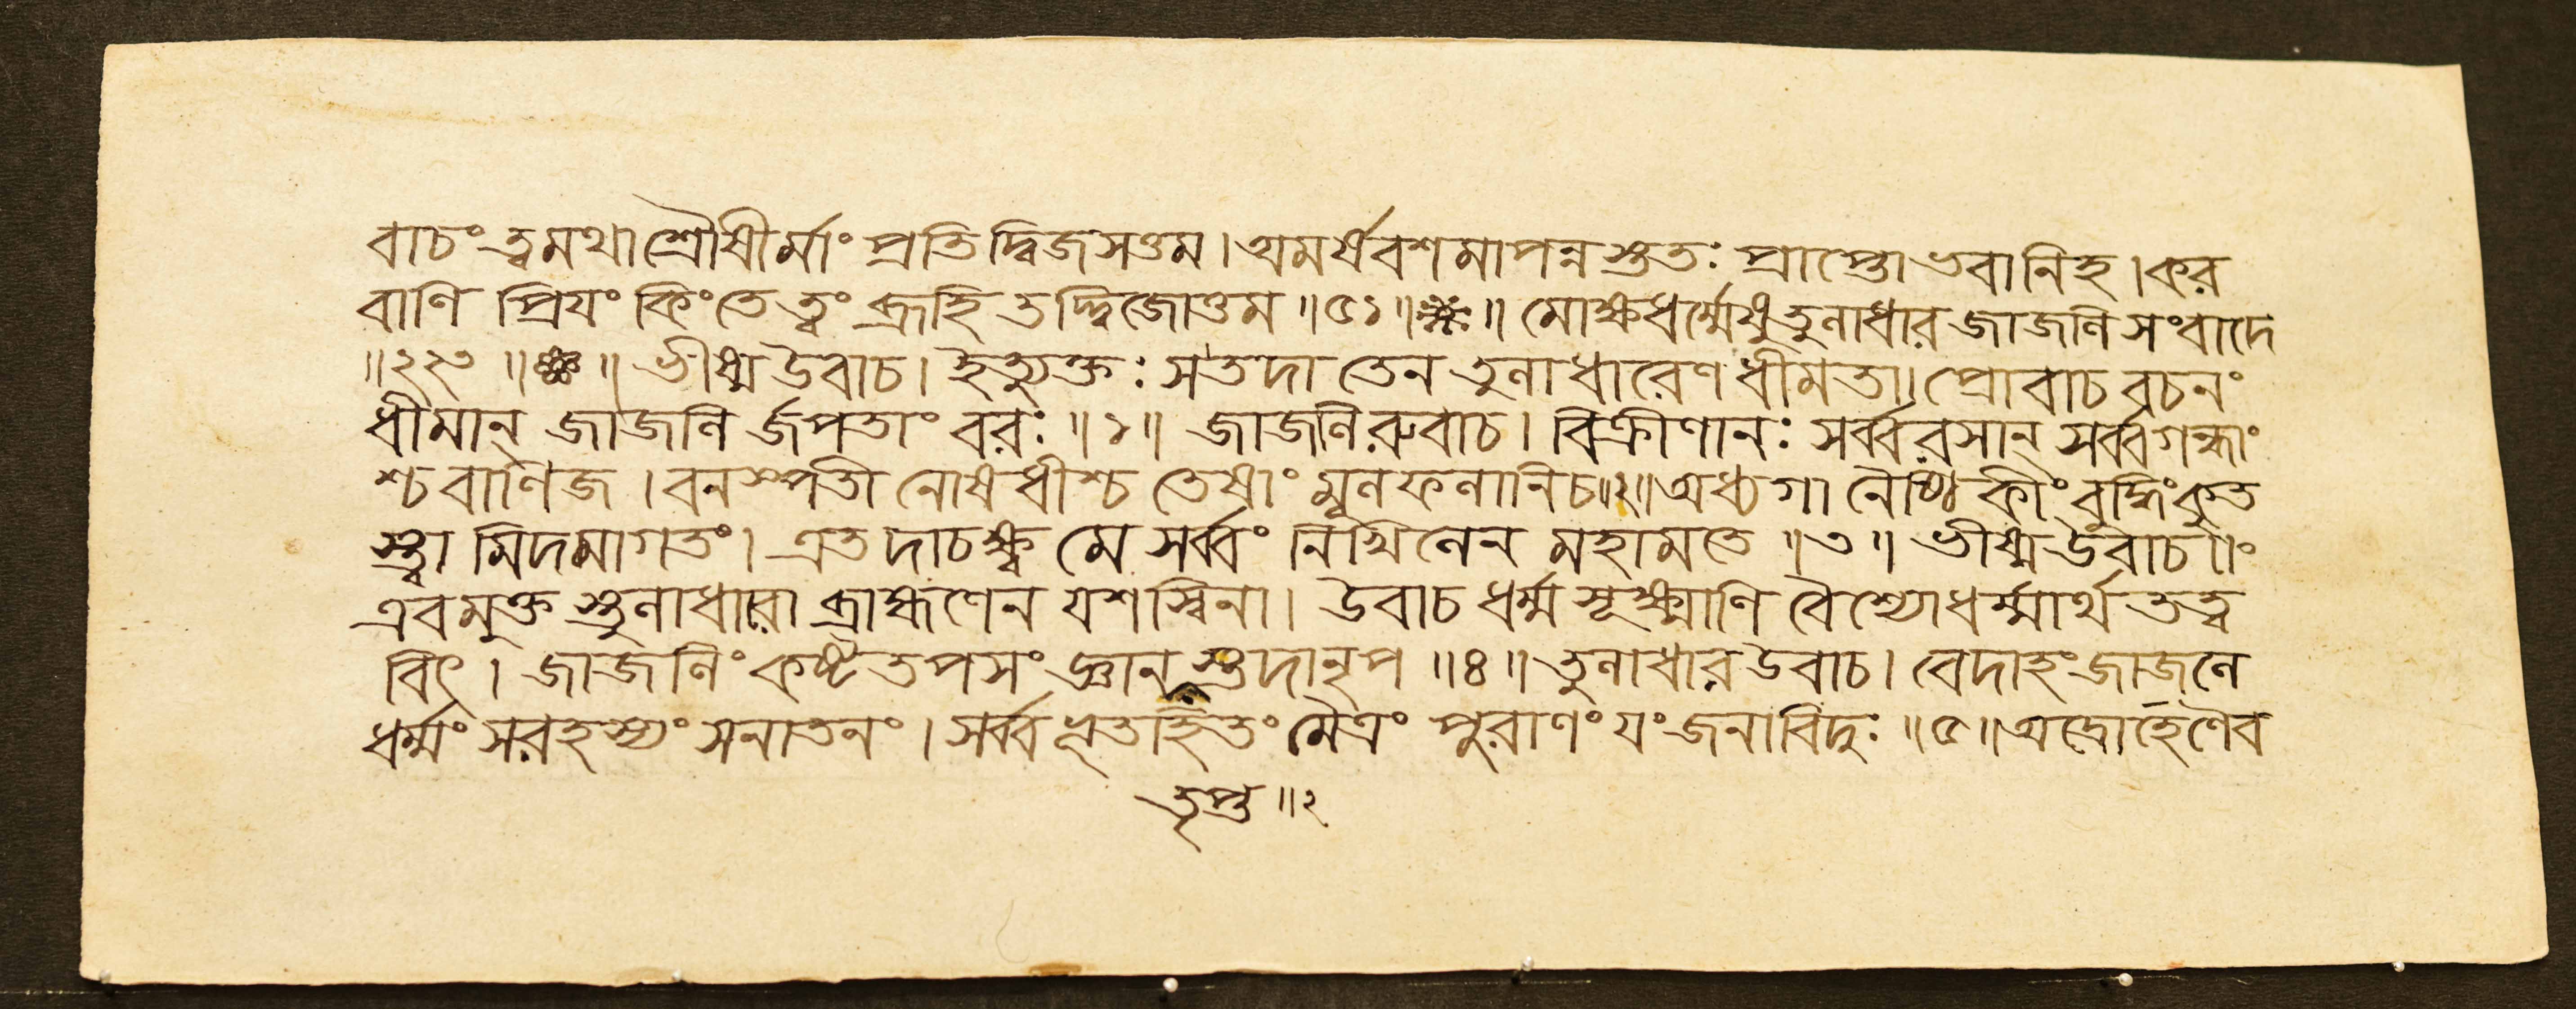 বাচং ত্বমথাশ্রৌষীর্মাং প্রতি দ্বিজসত্তম। অমর্ষবশমাপন্নস্ততঃ প্রাপ্তো ভবানিহ। কর
বাণি প্রিযং কিং তে ত্বং ব্রূহি তদ্দ্বিজোত্তম॥৫১॥ ॥ মোক্ষধর্ম্মেষু তুলাধার জাজলি সংবাদে
॥ ॥ ভীষ্ম উবাচ। ইত্যুক্তঃ স তদা তেন তুলাধারেণ ধীমতা। প্রোবাচ বচনং
ধীমান্ জাজলি র্জপতাং বরঃ॥১॥ জাজলিরুবাচ। বিক্রীণানঃ সর্ব্বরসান্ সর্ব্বগন্ধাং
শ্চ বাণিজ। বনস্পতী নোষধীশ্চ তেষাং মূলফলানিচ॥২॥ অধ্যগা নৈষ্ঠিকীং বুদ্ধিং কুত
স্ত্বা মিদমাগতং। এতদাচক্ষ্ব মে সর্ব্বং নিখিলেন মহামতে॥৩॥ ভীষ্ম উবাচ॥ঃ
এবমুক্ত স্তুলাধারো ব্রাহ্মণেন যশস্বিনা। উবাচ ধর্ম্মসূক্ষ্মাণি বৈশ্যোধর্ম্মার্থতত্ত্ব
বিৎ। জাজলিং কষ্টতপসং জ্ঞানস্তদানৃপ॥৪॥ তুলাধার উবাচ। বেদাহং জাজলে
ধর্ম্মং সরহস্যং সনাতনং। সর্ব্বভূতহিতং মৈত্রং পুরাণং যং জনাবিদুঃ॥৫॥ অদ্রোহেণৈব
তৃপ্ত॥২